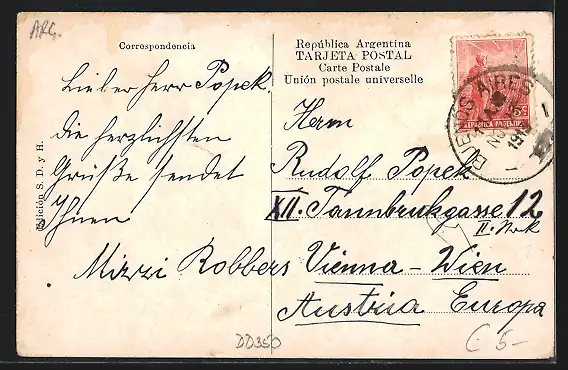 ARG.
Correspondencia
República Argentina
TARJETA POSTAL
Carte Postale
Unión postale universelle
Lieber Herr Popek.
die herzlichsten
Grüße sendet
Ihnen
Mizzi Robbers
Herrn
Rudolf Popek
XII. Tannbruckgasse 12
II. Stock
Vienna - Wien
Austria Europa
Edición S. D. y H.
5c
REPUBLICA ARGENTINA
BUENOS AIRES
DD350
C 5-